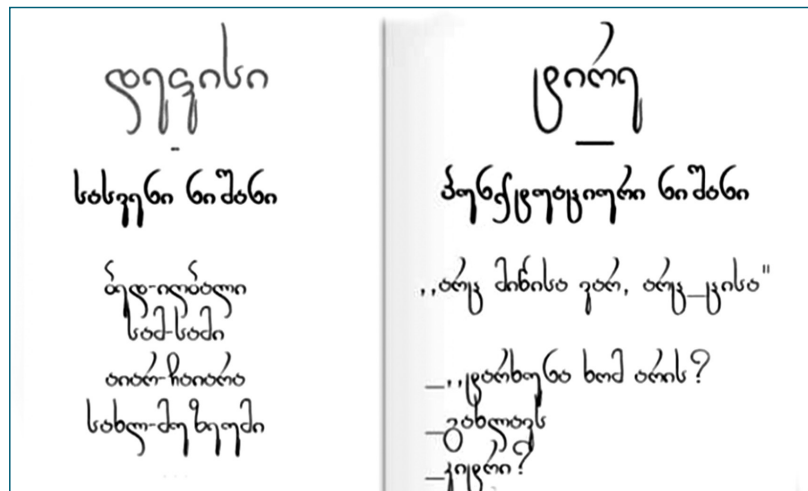 დეფისი
-
სასვენი ნიშანი
ბედ-იღბალი
სამ-სამი
აიარ-ჩაიარა
სახლ-მუზეუმი
ტირე
—
პუნქტუაციური ნიშანი
,,არც მიწისა ვარ, არც_ცისა"
_,,ტარხუნა ხომ არის?
_გახლავს
_კიტრი?